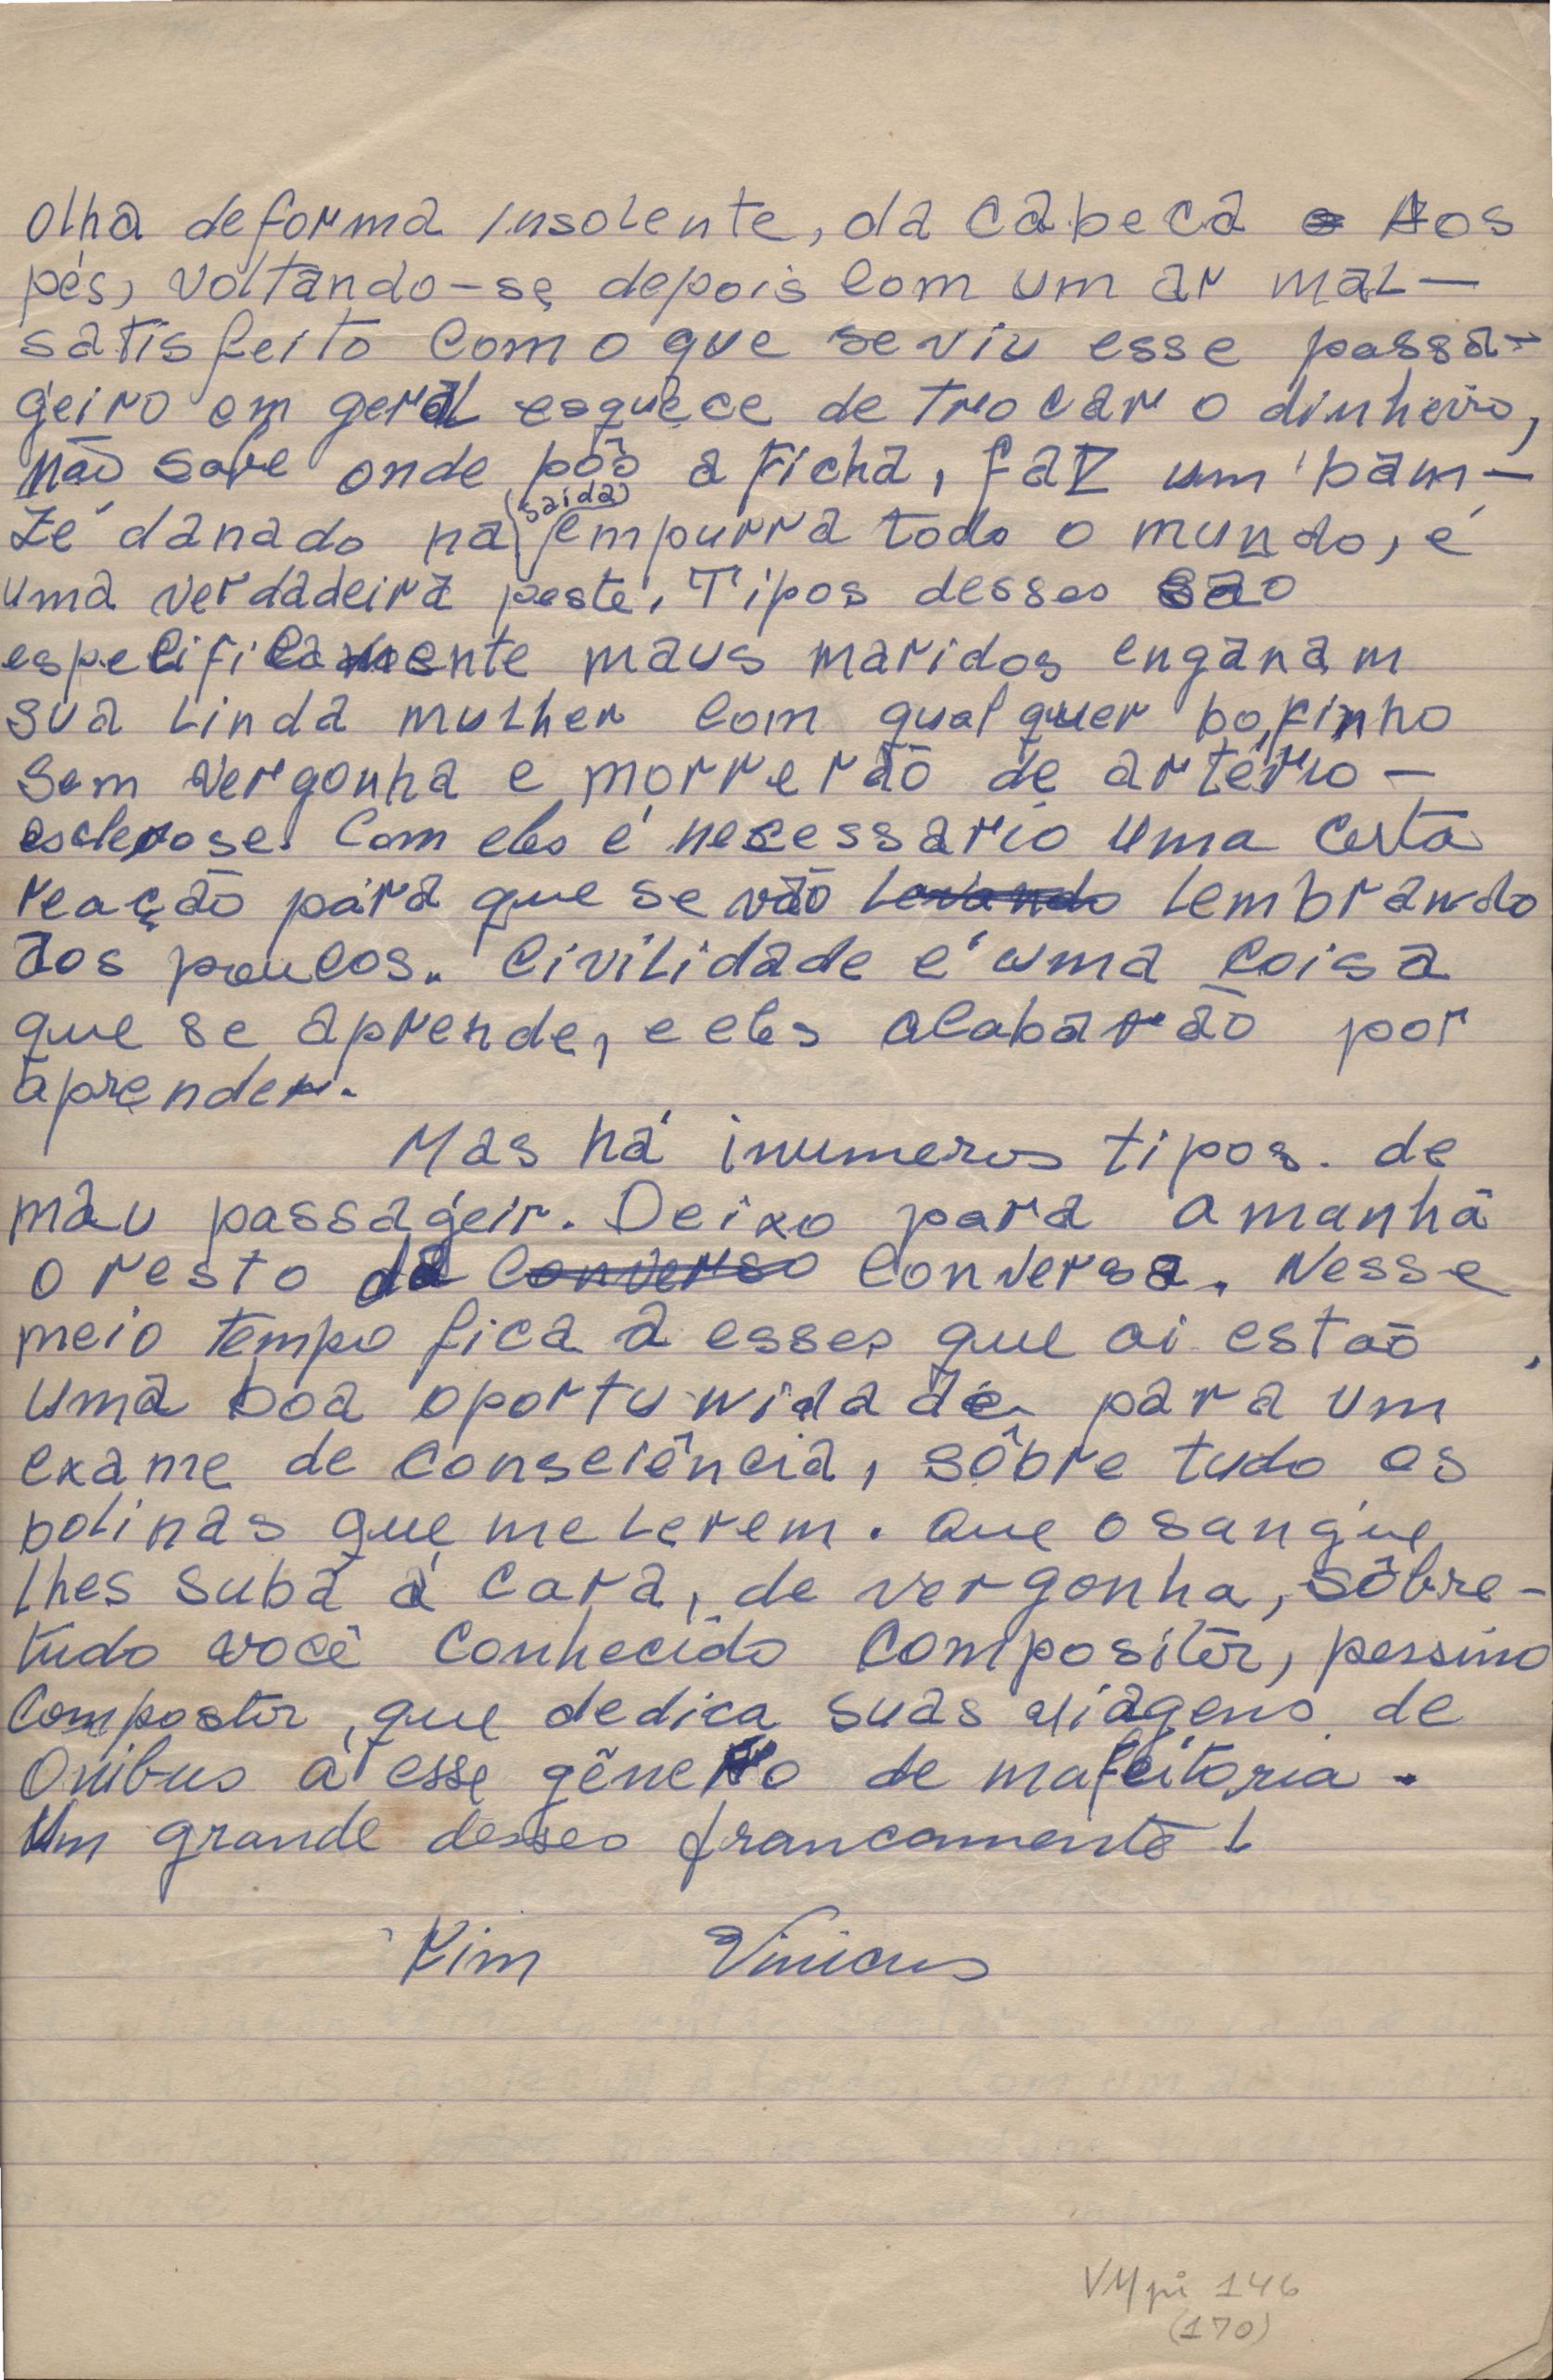 olha de forma insolente, da cabeca aos
pés, voltando-se depois com um ar mal-
satisfeito com o que se viu esse passa-
geiro em geral esquece de trocar o dinheiro,
não sabe onde pôs a ficha, faz um bam-
zé danado na (saida) empurra todo o mundo, é
uma verdadeira peste. Tipos desses são
especificamente maus maridos enganam
sua linda mulher com qualquer bofinho
sem vergonha e morrerão de artério-
esclerose. Com eles é necessario uma certa
reação para que se vão levando lembrando
aos poucos. Civilidade é uma coisa
que se aprende, e eles acabarão por
aprender.
Mas há inumeros tipos. de
mau passageir. Deixo para amanhã
o resto da converso conversa. Nesse
meio tempo fica a esses que ai estão
uma boa oportunidade para um
exame de consciência, sôbre tudo os
bolinas que me lerem. Que o sangue
lhes suba á cara, de vergonha, sôbre-
tudo você conhecido compositor, pessimo
compostor, que dedica suas viagens de
Onibus a esse gênero de mafeitoria.
Um grande desses francamente!
Fim Vinicius
VMpi 146
(170)